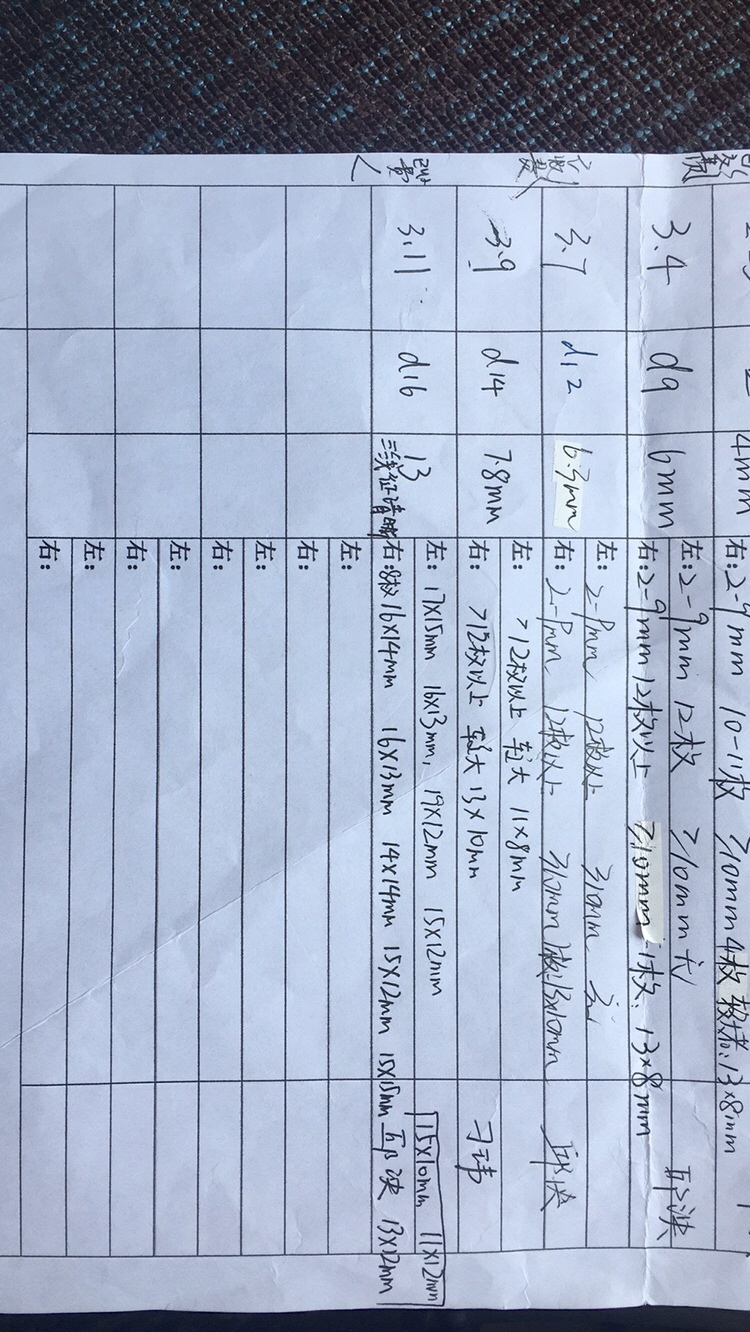 4mm
右：2-9mm 10-11枚 ≥10mm 4枚 13×8mm
3.4 d9 6mm
左：2-9mm 12枚 ≥10mm 无
右：2-9mm 12枚以上 ≥10mm 1枚：13×8mm
3.7 d12 6.3mm
左：2-9mm 12枚以上 ≥10mm 无
右：2-9mm 12枚以上 ≥10mm 1枚 13×10mm
3.9 d14 7.8mm
左：>12枚以上 较大 11×8mm
右：>12枚以上 较大 13×10mm
3.11 d16 13
三线征清晰
左：17×15mm 16×13mm, 19×12mm 15×12mm 15×10mm 11×12mm
右：8枚 16×14mm 16×13mm 14×14mm 15×12mm 15×15mm 13×12mm
左：
右：
左：
右：
左：
右：
左：
右：